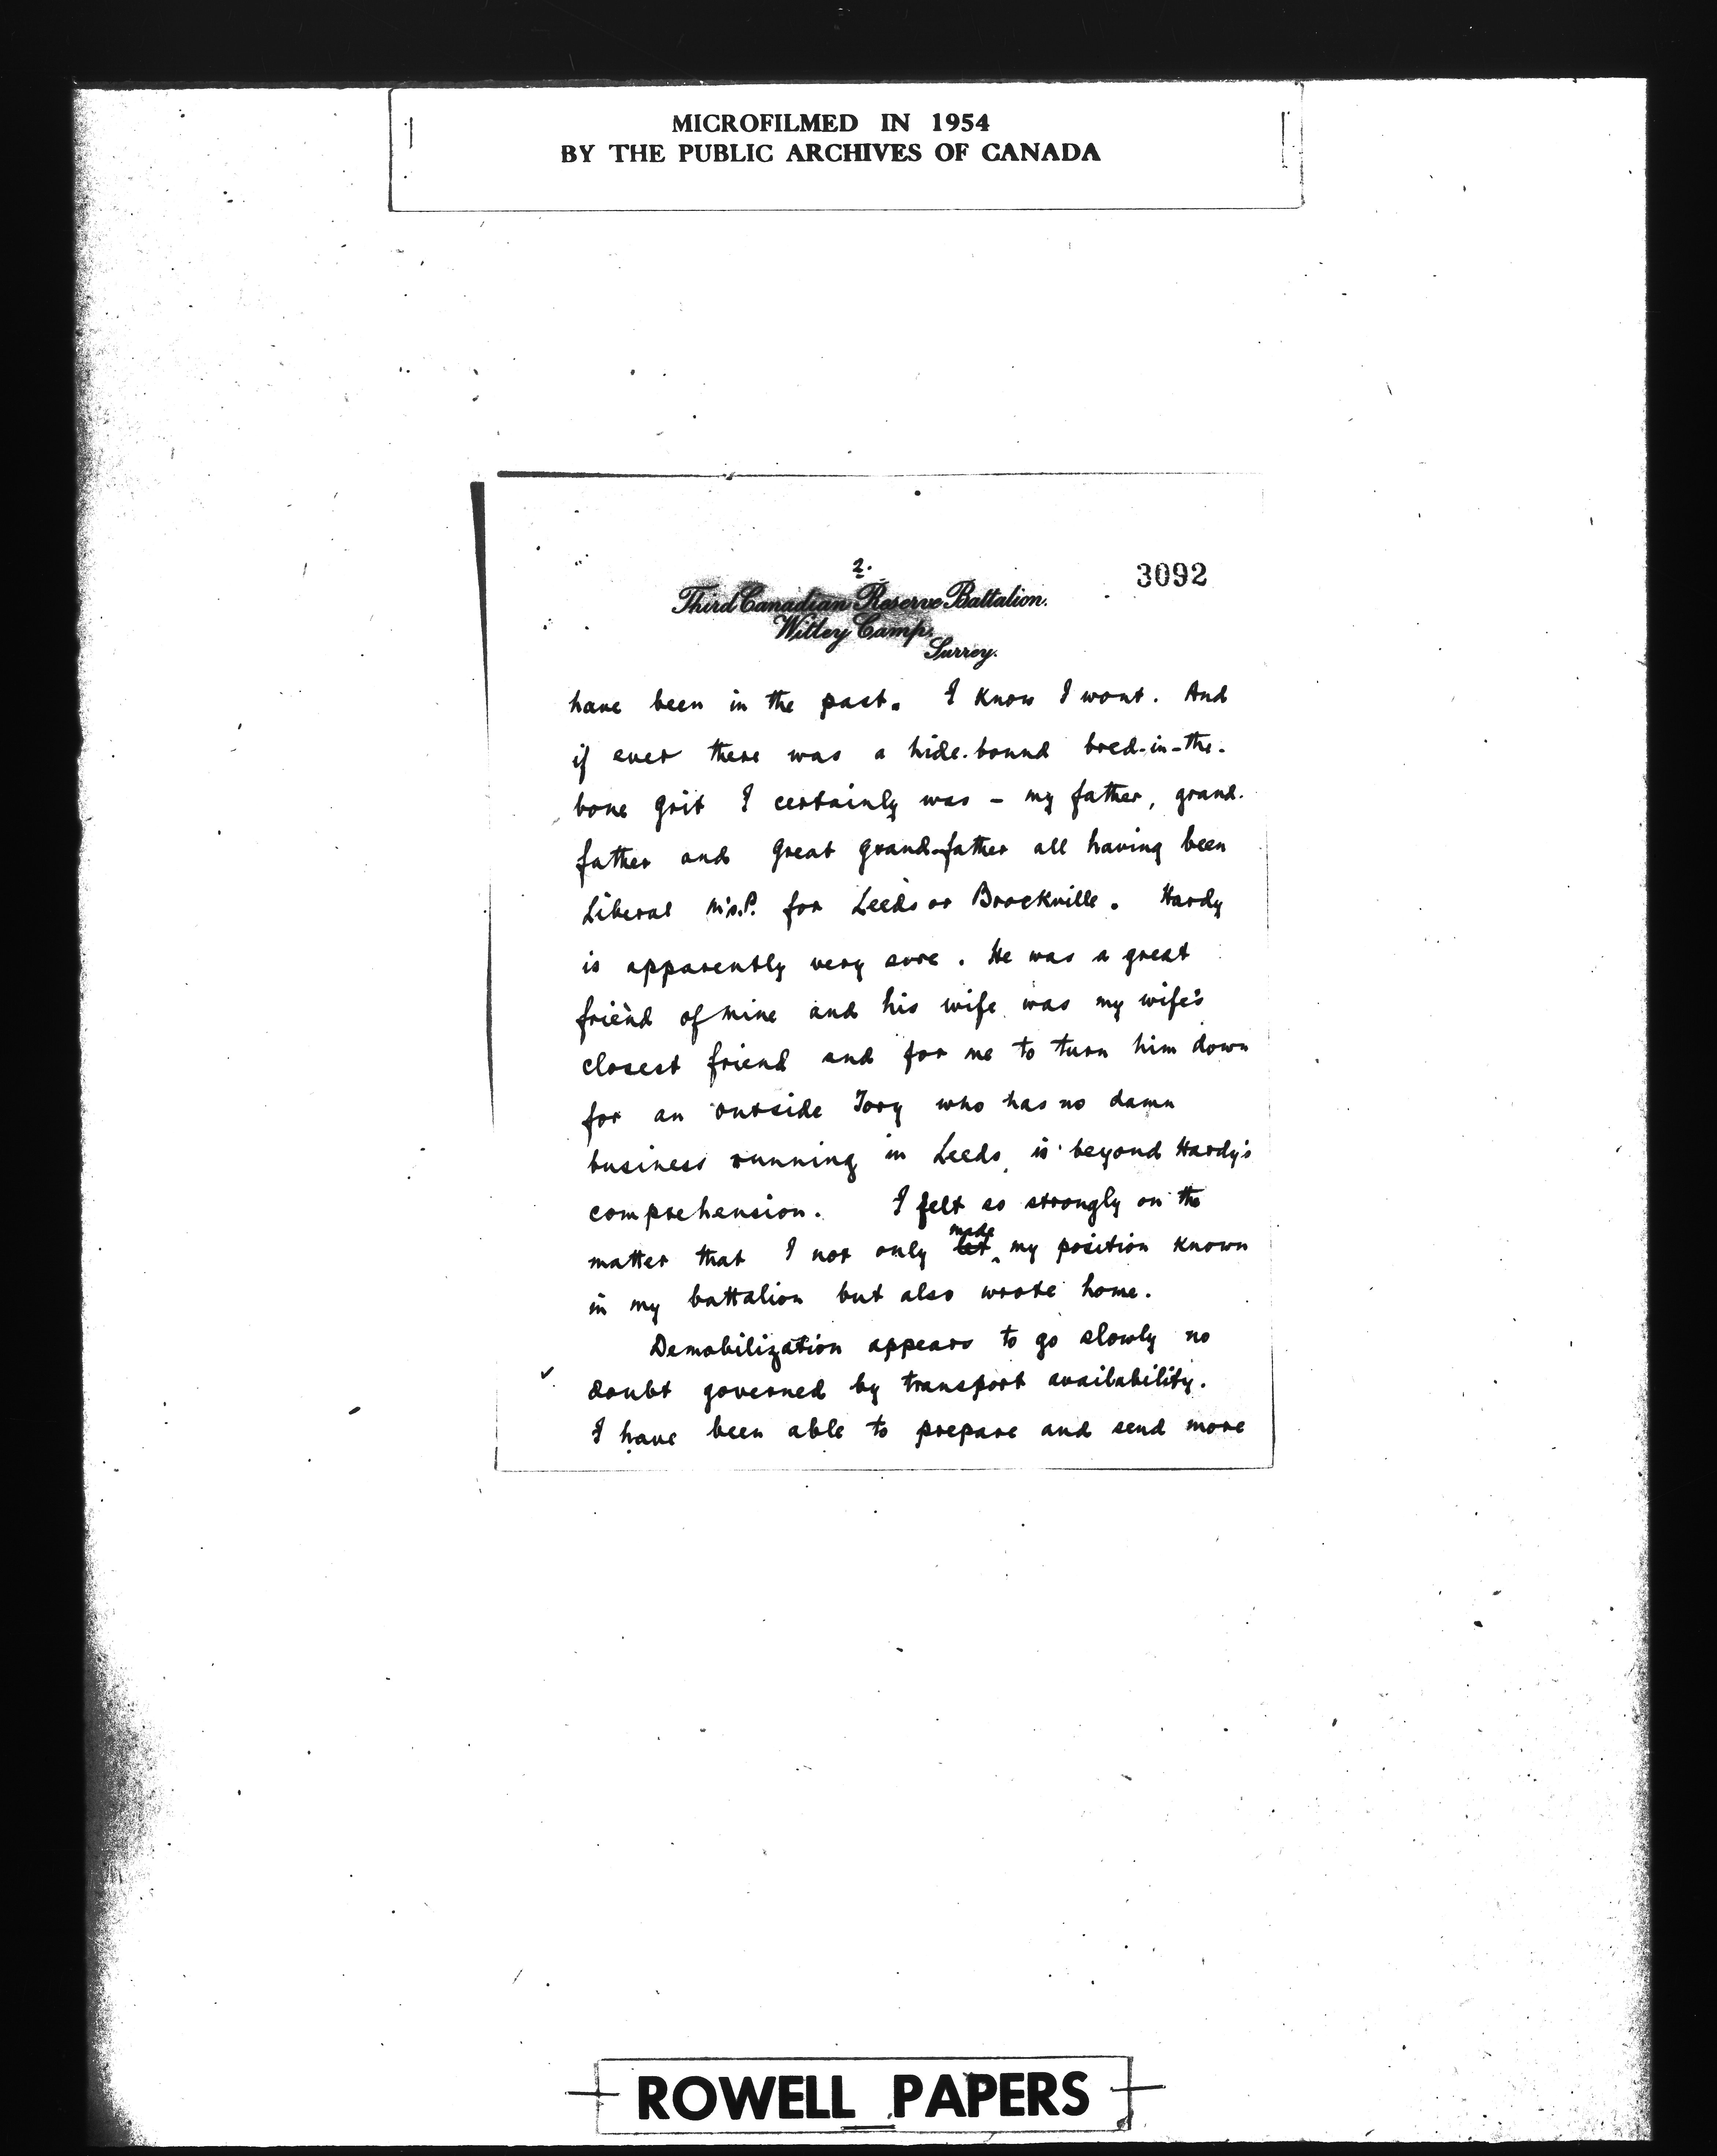 MICROFILMED IN 1954
BY THE PUBLIC ARCHIVES OF CANADA
2.
3092
Third Canadian Reserve Battalion.
Witley Camp,
Surrey.
have been in the past. I know I wont. And
if ever there was a hide-bound bred-in-the-
bone Grit I certainly was - my father, grand-
father and great grand-father all having been
Liberal M's.P. for Leeds or Brockville. Hardy
is apparently very sore. He was a great
friend of mine and his wife was my wife's
closest friend and for me to turn him down
for an outside Tory who has no damn
business running in Leeds, is beyond Hardy's
comprehension. I felt so strongly on the
matter that I not only let made my position known
in my battalion but also wrote home.
Demobilization appears to go slowly no
doubt governed by transport availability.
I have been able to prepare and send more
ROWELL PAPERS